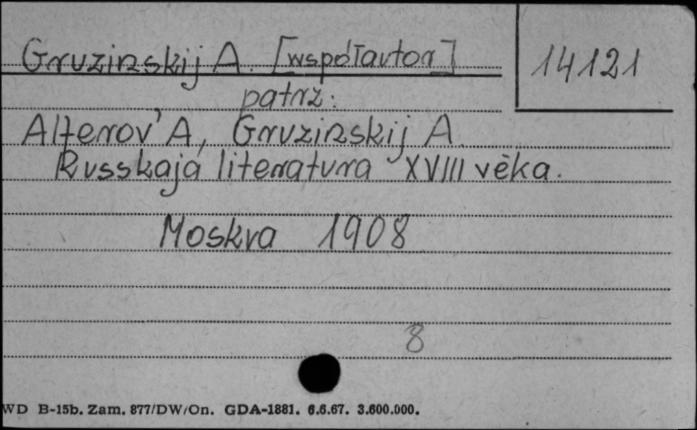 Gruzinskij A. [współautor]
14121
patrz:
Alferov' A, Gruzinskij A.
Russkaja literatura XVIII věka.
Moskva 1908
8
WD B-15b. Zam. 877/DW/On. GDA-1881. 6.6.67. 3.600.000.